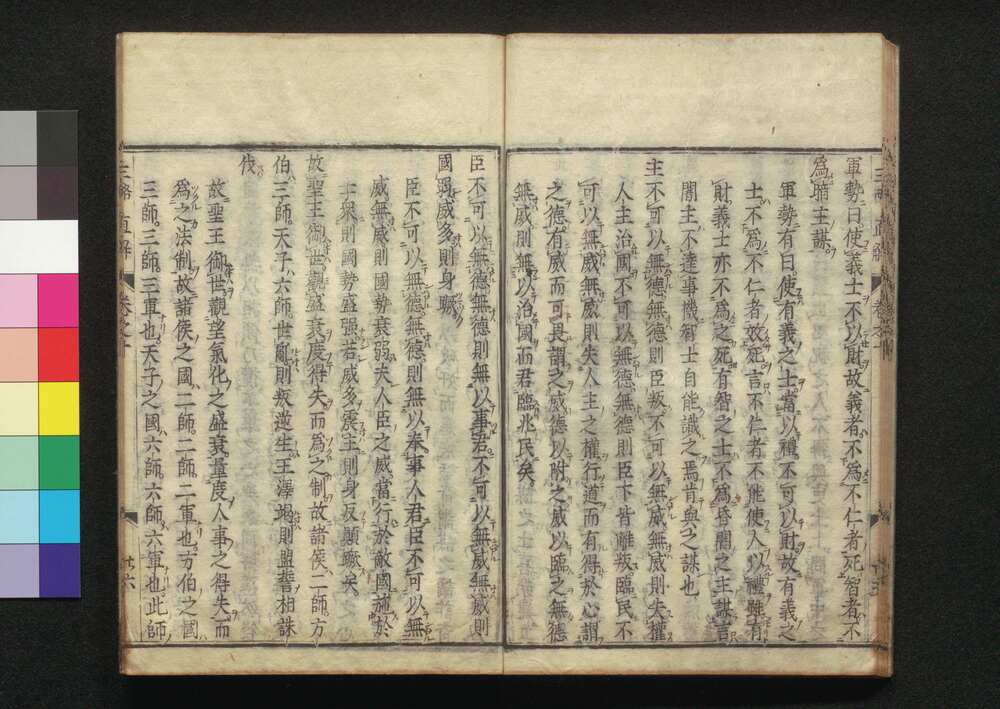 軍勢曰使義士不以財故義者不爲不仁者死智者不
爲暗主謀
軍勢有曰使有義之士當以禮不可以財故有義之
士不爲不仁者效死言不仁者不能使人以禮雖有
財義士亦不爲之死有智之士不爲昏闇之主謀言
闇主不達事機智士自能識之焉肯與之謀也
主不可以無德無德則臣叛不可以無威無威則失權
人主治國不可以無德無德則臣下皆離叛臨民不
可以無威無威則失人主之權行道而有得於心謂
之德有威而可畏謂之威德以附之威以臨之無德
無威則無以治國而君臨兆民矣
臣不可以無德無德則無以事君不可以無威無威則
國弱威多則身蹶
臣不可以無德無德則無以奉事人君臣不可以無
威無威則國勢衰弱夫人臣之威當行於敵國施於
士衆則國勢盛强若威多震主則身反顚蹶矣
故聖王御世觀盛衰度得失而爲之制故諸侯二師方
伯三師天子六師世亂則叛逆生王澤竭則盟誓相誅
伐
故聖王御世觀望氣化之盛衰量度人事之得失而
爲之法制故諸侯之國二師二師二軍也方伯之國
三師三師三軍也天子之國六師六師六軍也此師
三略直解 卷之一
廿六